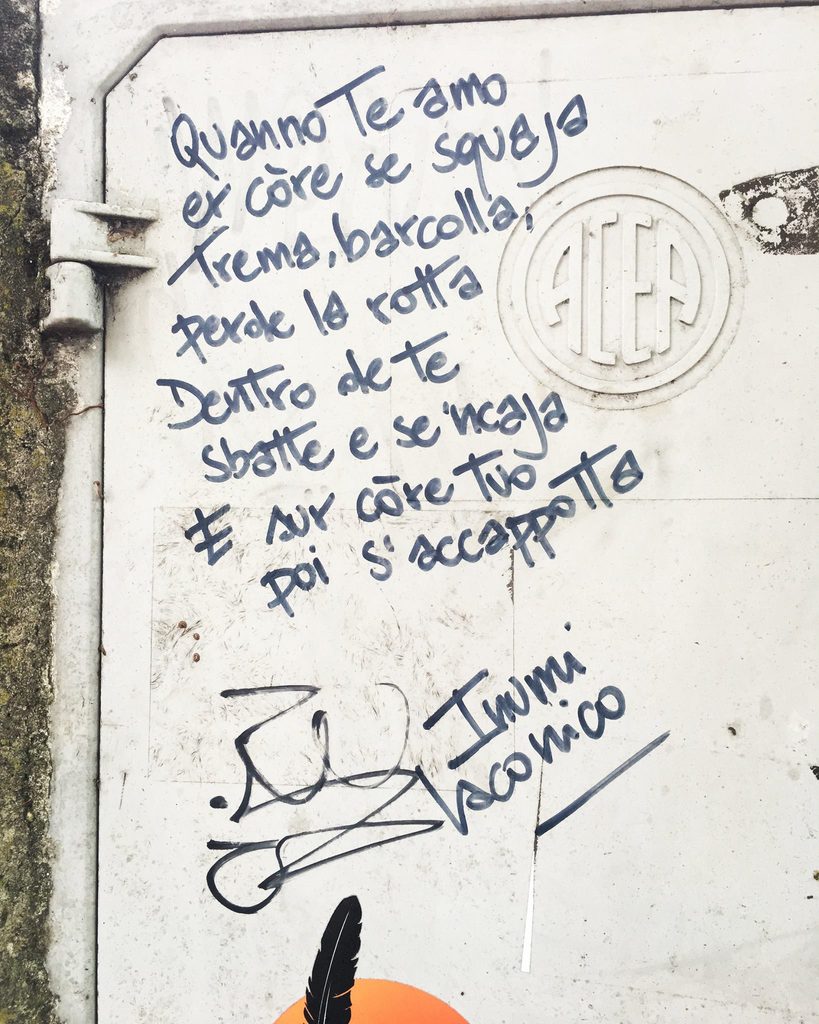 Quanno Te amo
er còre se squaja
Trema, barcolla,
perde la rotta
Dentro de te
sbatte e se 'ncaja
E sur còre tuo
poi s'accappotta
Inumi
laconico
ACEA